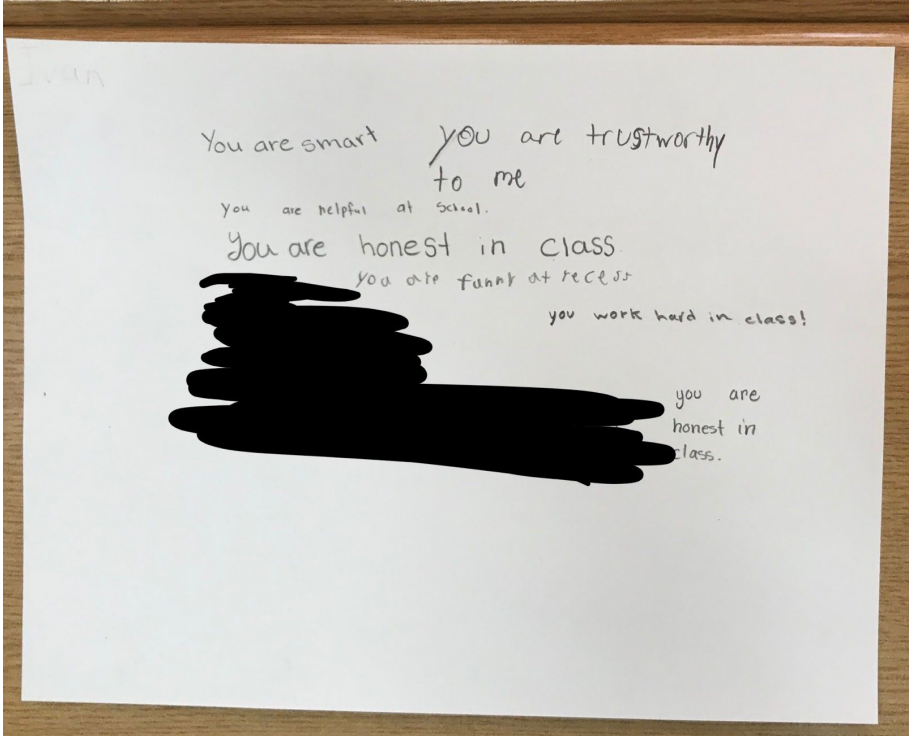 You are smart
you are trustworthy
to me
you are helpful at school.
You are honest in class.
you are funny at recess
you work hard in class!
you are
honest in
class.